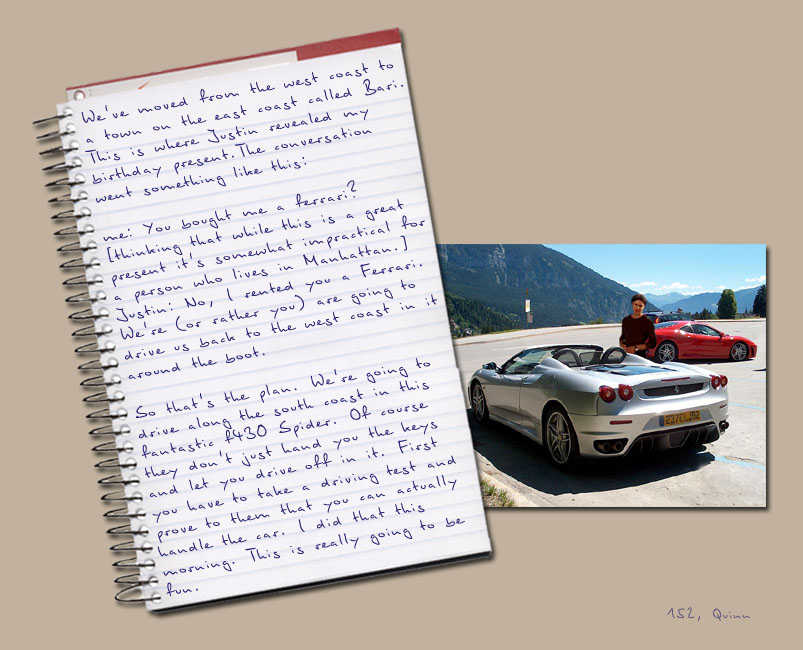 We've moved from the west coast to
a town on the east coast called Bari.
This is where Justin revealed my
birthday present. The conversation
went something like this:
me: You bought me a ferrari?
[thinking that while this is a great
present it's somewhat impractical for
a person who lives in Manhattan.]
Justin: No, I rented you a Ferrari.
We're (or rather you) are going to
drive us back to the west coast in it
around the boot.
So that's the plan. We're going to
drive along the south coast in this
fantastic f430 Spider. Of course
they don't just hand you the keys
and let you drive off in it. First
you have to take a driving test and
prove to them that you can actually
handle the car. I did that this
morning. This is really going to be
fun.
152, Quinn